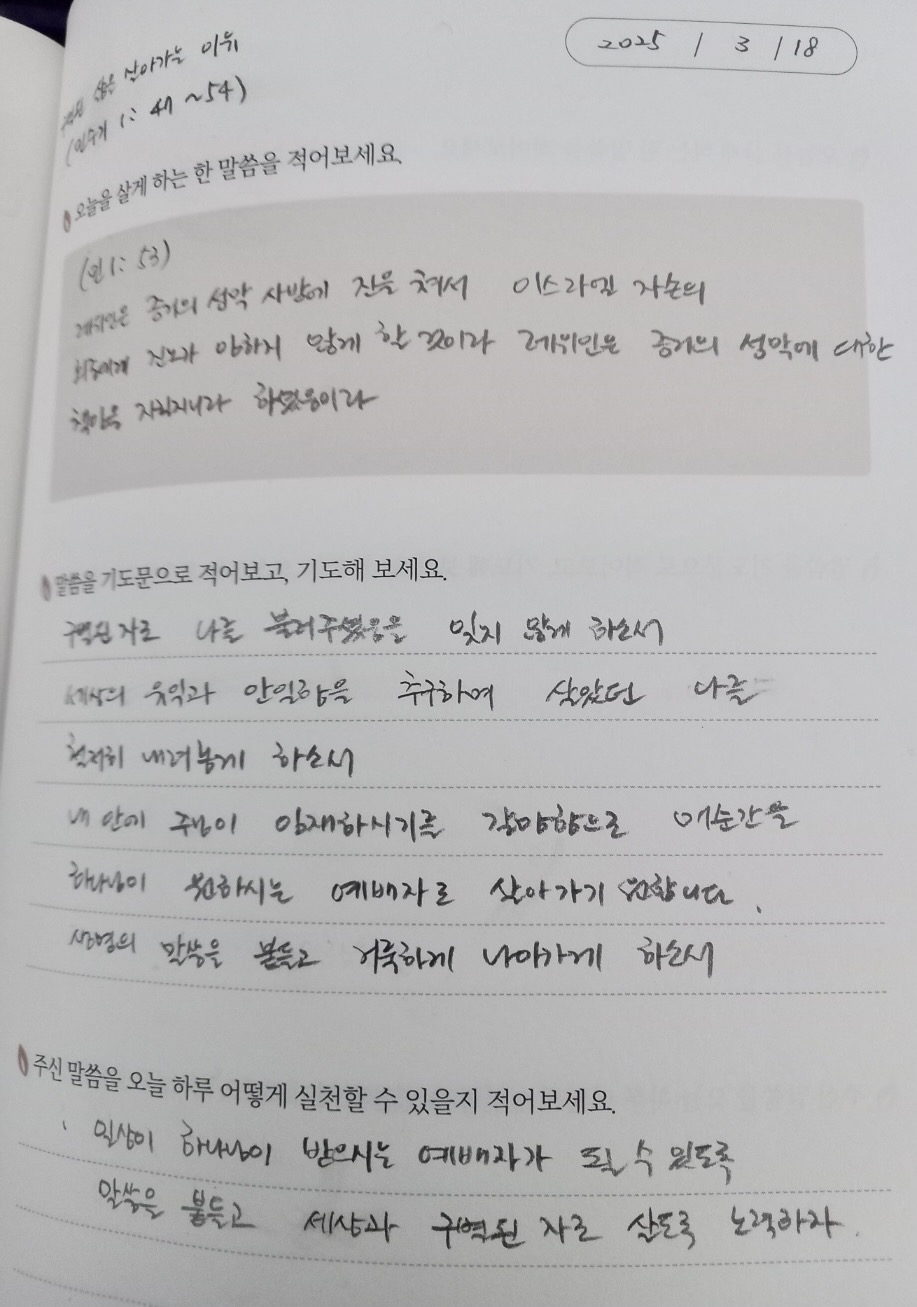 2025 / 3 / 18
구별된 삶을 살아가는 이유
(민수기 1: 47 ~54)
오늘을 살게 하는 한 말씀을 적어보세요.
(민 1: 53)
레위인은 증거의 성막 사방에 진을 쳐서 이스라엘 자손의
회중에게 진노가 임하지 않게 할 것이라 레위인은 증거의 성막에 대한
책임을 지킬지니라 하셨음이라
말씀을 기도문으로 적어보고, 기도해 보세요.
구별된 자로 나를 불러주셨음을 잊지 않게 하소서
세상의 유익과 안일함을 추구하며 살았던 나를
철저히 내려놓게 하소서
내 안에 주님이 임재하시기를 갈망함으로 매순간을
하나님이 원하시는 예배자로 살아가기 원합니다.
생명의 말씀을 붙들고 거룩하게 나아가게 하소서
주신 말씀을 오늘 하루 어떻게 실천할 수 있을지 적어보세요.
일상이 하나님이 받으시는 예배자가 될 수 있도록
말씀을 붙들고 세상과 구별된 자로 살도록 노력하자.